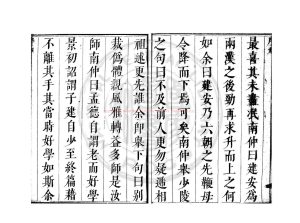 最喜其未盡汝南仲曰建安為
兩漢之後勁再求升而上之何
如余曰建安乃六朝之先鞭毋
令降而下焉可矣南仲舉少陵
之句曰不及前人更勿疑遞相
祖述更先誰余卽集下句曰別
裁偽體親風雅轉益多師是汝
師南仲曰孟德自謂老而好學
景初詔謂子建自少至終篇籍
不離其手其當時好學如斯余